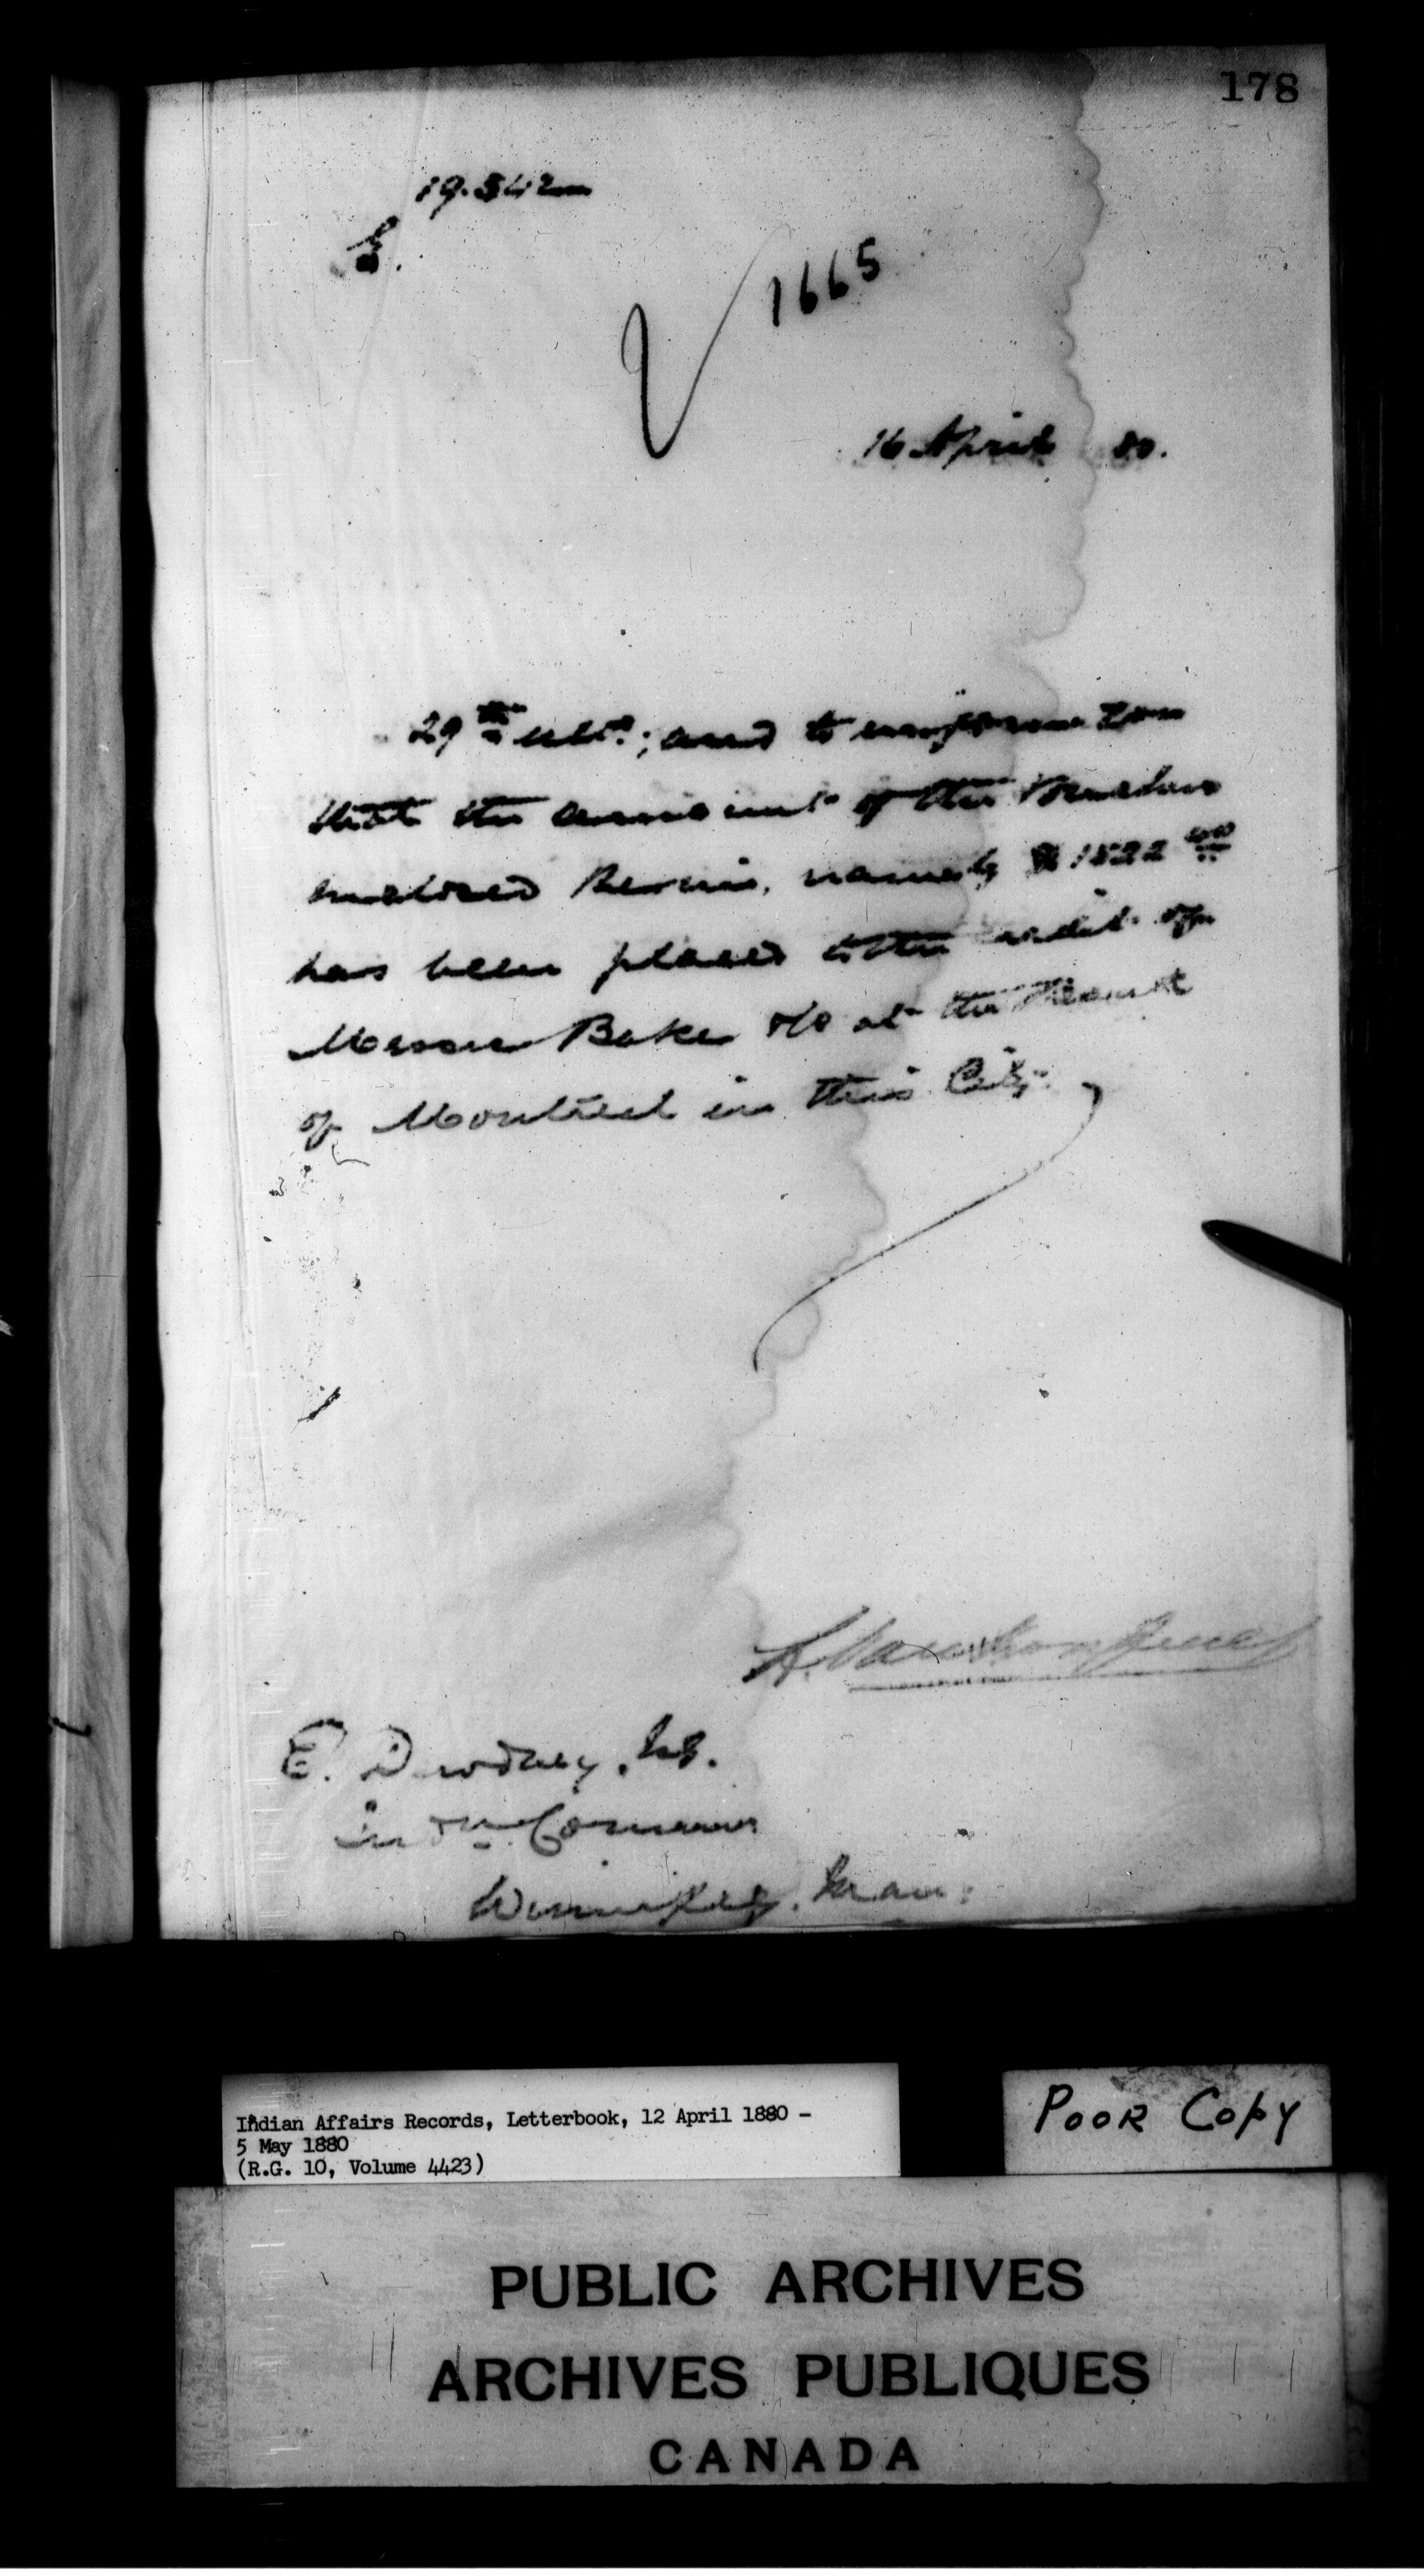 178
19.342
1665
16 April 80.
29th ulto.; and to inform you
that the amount of the
enclosed namely $1522
has been placed to the credit of
Messrs Baker &Co at the Bank
of Montreal in this City.
E. Dewdney, Esq.
Indn. Commr
Winnipeg, Man.
Indian Affairs Records, Letterbook, 12 April 1880 -
5 May 1880
(R.G. 10, Volume 4423)
POOR COPY
PUBLIC ARCHIVES
ARCHIVES PUBLIQUES
CANADA